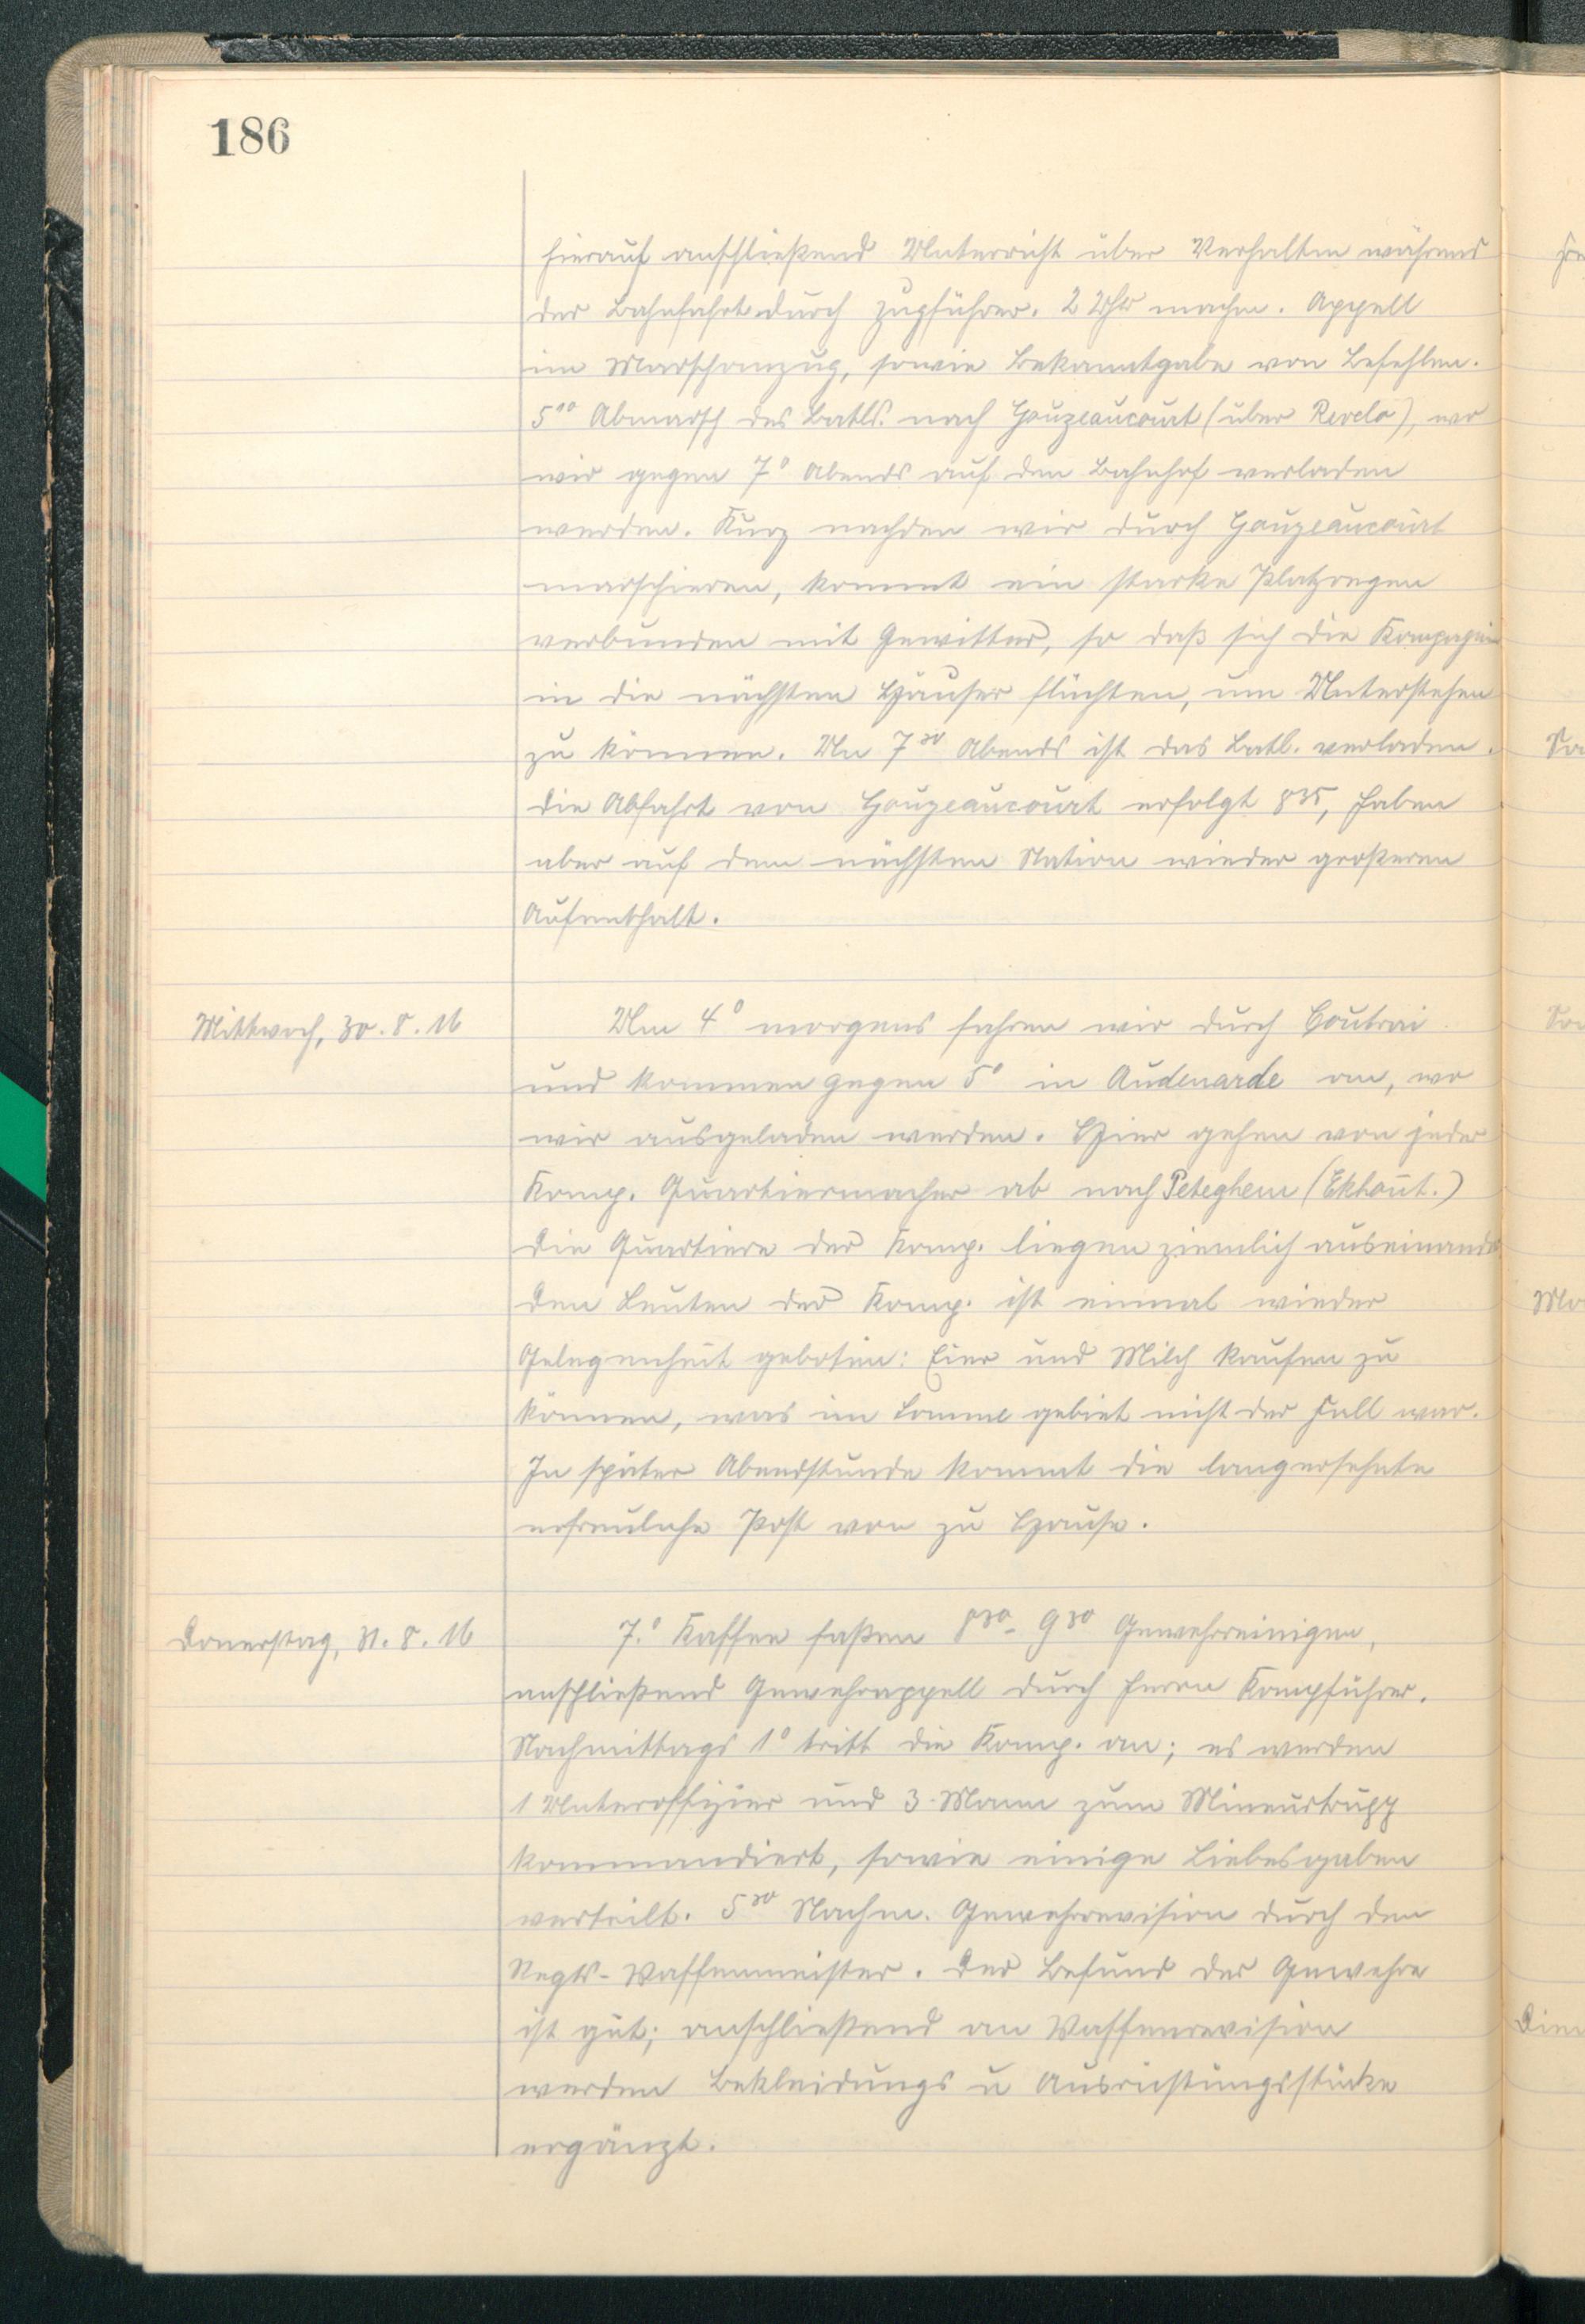 186
hierauf anschließend Unterricht über Verhalten während
der Bahnfahrt durch Zugführer. 2 Uhr nachm. Appell
im Marschanzug, sowie Bekanntgabe von Befehlen.
5¹⁰ Abmarsch des Batls. nach Gouzeaucourt (über Revelo), wo
wir gegen 7⁰ Abends auf den Bahnhof verladen
werden. Kurz nachden wir durch Gouzeaucourt
marschieren, kommt ein starke Platzregen
verbunden mit Gewitter, so daß sich die Kompagnie
in die nächsten Häuser flüchten, um Unterstehen
zu können. Um 7³⁰ Abends ist das Batl. verladen.
die Abfahrt von Gouzeaucourt erfolgt 8³⁵, haben
aber auf dem nächsten Station wieder großeren
Aufenthalt.
Mittwoch, 30.8.16
Um 4⁰ morgens fahren wir durch Coutrai
und kommen gegen 5⁰ in Audenarde an, wo
wir ausgeladen werden. Hier gehen von jeder
Komp. Quartiermacher ab nach Peteghem (Ekhout.)
die Quartiere der Komp. liegen ziemlich auseinander
den Leuten der Komp. ist einmal wieder
Gelegenheit geboten: Eier und Milch kaufen zu
können, was im Somme gebiet nicht der Fall war.
In später Abendstunde kommt die langersehnte
erfreuliche Post von zu Hause.
Donerstag, 31.8.16
7.⁰ Kaffee faßen 8³⁰- 9³⁰ Gewehrreinigen,
anschließend Gewehrappell durch Herrn Kompführer.
Nachmittags 1⁰ tritt die Komp. an; es werden
1 Unteroffizier und 3 Mann zum Mineurtrupp
kommandiert, sowie einige Liebesgaben
verteilt. 5³⁰ Nachm. Gewehrrevision durch den
Regts-Waffenmeister. Der Befund der Gewehre
ist gut; anschließend an Waffenrevision
werden Bekleidungs u Ausrüstungsstücke
ergänzt.